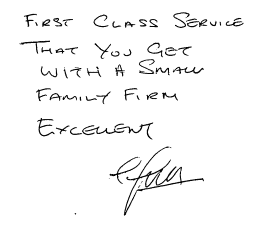 First Class Service
That You Get
with a Small
Family Firm
Excellent